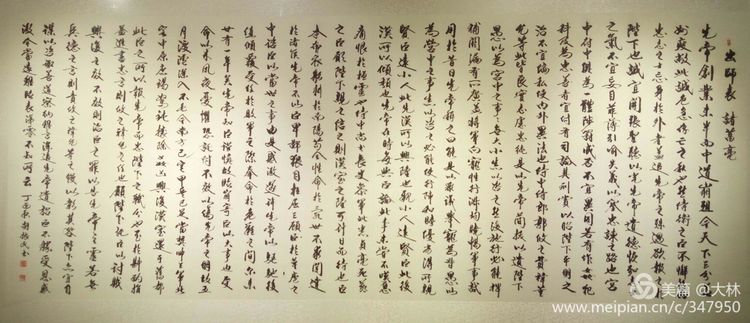 出師表 諸葛亮
先帝創業未半而中道崩殂今天下三分
益州疲敝此誠危急存亡之秋也然侍衛之臣不懈於內
忠志之士忘身於外者蓋追先帝之殊遇欲報之於
陛下也誠宜開張聖聽以光先帝遺德恢弘志士
之氣不宜妄自菲薄引喻失義以塞忠諫之路也宮
中府中俱為一體陟罰臧否不宜異同若有作奸犯
科及為忠善者宜付有司論其刑賞以昭陛下平明之
治不宜偏私使內外異法也侍中侍郎郭攸之費禕董
允等此皆良實志慮忠純是以先帝簡拔以遺陛下
愚以為宮中之事事無大小悉以咨之然後施行必能裨
補闕漏有所廣益將軍向寵性行淑均曉暢軍事試
用於昔日先帝稱之曰能是以眾議舉寵為督愚以
為營中之事悉以咨之必能使行陣和睦優劣得所親
賢臣遠小人此先漢所以興隆也親小人遠賢臣此後
漢所以傾頹也先帝在時每與臣論此事未嘗不嘆息
痛恨於桓靈也侍中尚書長史參軍此悉貞亮死節
之臣願陛下親之信之則漢室之隆可計日而待也臣
本布衣躬耕於南陽苟全性命於亂世不求聞達
於諸侯先帝不以臣卑鄙猥自枉屈三顧臣於草廬之
中諮臣以當世之事由是感激遂許先帝以驅馳後
值傾覆受任於敗軍之際奉命於危難之間爾來
廿有一年矣先帝知臣謹慎故臨崩寄臣以大事也受
命以來夙夜憂嘆恐託付不效以傷先帝之明故五
月渡瀘深入不毛今南方已定兵甲已足當獎帥三軍北
定中原庶竭駑鈍攘除奸凶興復漢室還於舊都
此臣所以報先帝而忠陛下之職分也至於斟酌損
益進盡忠言則攸之禕允之任也願陛下託臣以討賊
興復之效不效則治臣之罪以告先帝之靈若無
興德之言則責攸之禕允等之慢以彰其咎陛下亦宜自
謀以諮諏善道察納雅言深追先帝遺詔臣不勝受恩感
激今當遠離臨表涕零不知所云 丁酉秋
美篇@大林
www.meipian.cn/c/347950